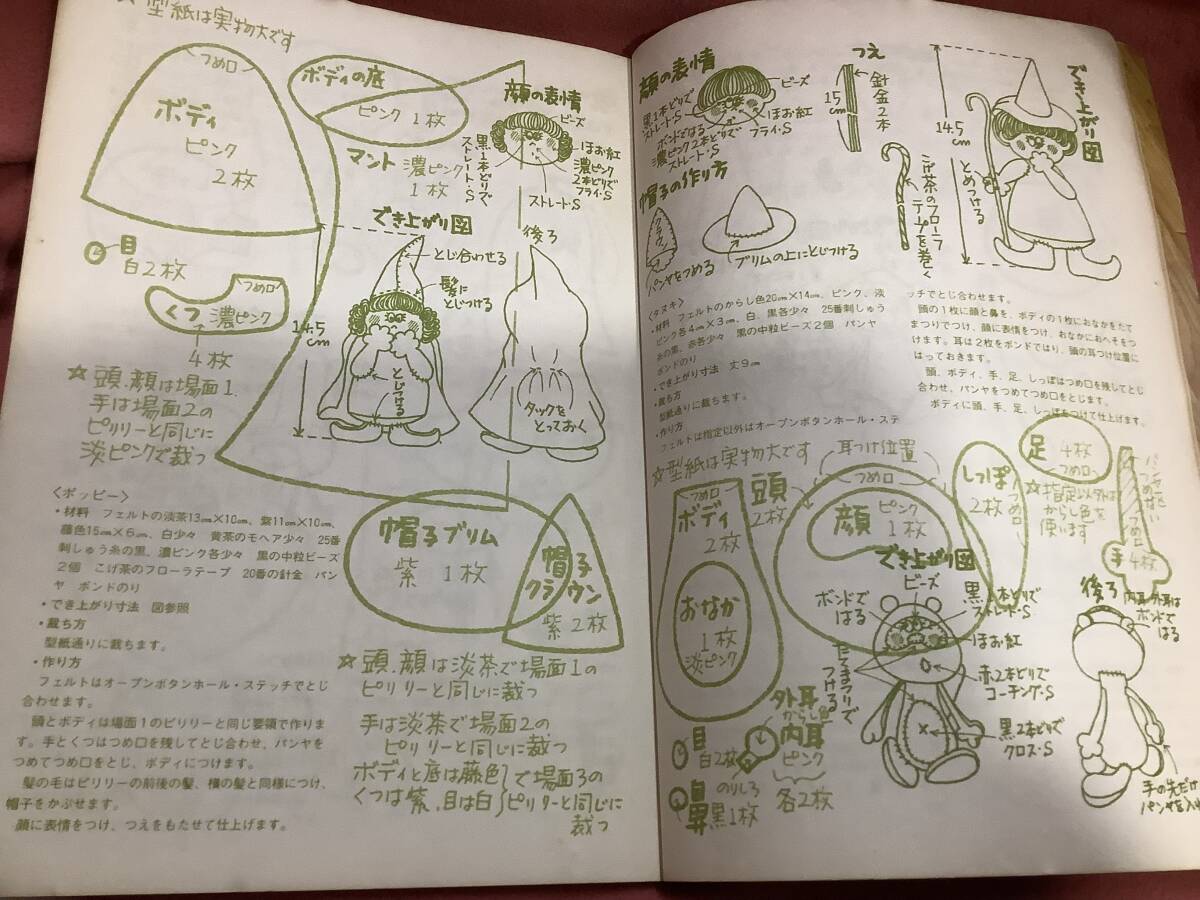 ☆型紙は実物大です
つめ口
ボディ
ピンク
2枚
ボディの底
ピンク 1枚
マント 濃ピンク
1枚
顔の表情
ビーズ
ほお紅
濃ピンク
2本どりで
フライ・S
ストレート・S
黒1本どりで
ストレート・S
目
白2枚
つめ口
くつ 濃ピンク
4枚
☆頭、顔は場面1、
手は場面2の
ピリリーと同じに
淡ピンクで裁つ
でき上がり図
とじ合わせる
髪に
とじつける
14.5
cm
とじつける
後ろ
タックを
とっておく
〈ポッピー〉
・材料 フェルトの淡茶13cm×10cm、紫11cm×10cm、
藤色15cm×6cm、白少々 黄茶のモヘア少々 25番
刺しゅう糸の黒、濃ピンク各少々 黒の中粒ビーズ
2個 こげ茶のフローラテープ 20番の針金 パン
ヤ ボンドのり
・でき上がり寸法 図参照
・裁ち方
型紙通りに裁ちます。
・作り方
フェルトはオープンボタンホール・ステッチでとじ
合わせます。
頭とボディは場面1のピリリーと同じ要領で作りま
す。手とくつはつめ口を残してとじ合わせ、パンヤを
つめてつめ口をとじ、ボディにつけます。
髪の毛はピリリーの前後の髪、横の髪と同様につけ、
帽子をかぶせます。
顔に表情をつけ、つえをもたせて仕上げます。
帽子ブリム
紫 1枚
帽子
クラウン
紫2枚
☆頭、顔は淡茶で場面1の
ピリリーと同じに裁つ
手は淡茶で場面2の
ピリリーと同じに裁つ
ボディと底は藤色 で場面3の
くつは紫、目は白 ピリリーと同じに
裁つ
顔の表情
ビーズ
黒1本どりで
ストレート・S
ほお紅
フライ・S
ボンドではる
濃ピンク2本どりで
ストレート・S
つえ
15
cm
針金2本
こげ茶のフローラ
テープを巻く
でき上がり図
14.5
cm
とめつける
帽子の作り方
クラウン
パンヤをつめる
ブリムの上にとじつける
〈タヌキ〉
・材料 フェルトのからし色20cm×14cm、ピンク、淡
ピンク各4cm×3cm、白、黒各少々 25番刺しゅう
糸の黒、赤各少々 黒の中粒ビーズ2個 パンヤ
ボンドのり
・でき上がり寸法 丈9cm
・裁ち方
型紙通りに裁ちます。
・作り方
フェルトは指定以外はオープンボタンホール・ステ
ッチでとじ合わせます。
頭の1枚に顔と鼻を、ボディの1枚におなかをたて
まつりでつけ、顔に表情をつけ、おなかにおへそをつ
けます。耳は2枚をボンドではり、頭の耳つけ位置に
はっておきます。
頭、ボディ、手、足、しっぽはつめ口を残してとじ
合わせ、パンヤをつめてつめ口をとじます。
ボディに頭、手、足、しっぽをつけて仕上げます。
☆型紙は実物大です
つめ口
ボディ
2枚
おなか
1枚
淡ピンク
頭
2枚
耳つけ位置
つめ口
顔
ピンク
1枚
しっぽ
2枚
つめ口
足
4枚
つめ口
☆指定以外は
からし色を
使います
つめ口
手 4枚
でき上がり図
ビーズ
ボンドで
はる
黒1本どりで
ストレート・S
ほお紅
赤2本どりで
コーチング・S
黒2本どりで
クロス・S
たてまつりで
つける
後ろ
内耳、外耳は
ボンドで
はる
手の先だけ
目
白2枚
鼻
黒1枚
のりしろ
外耳
からし色
内耳
ピンク
各2枚